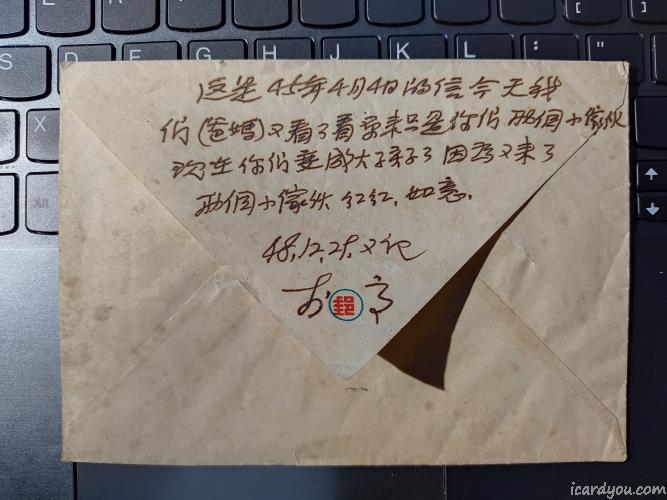 这是45年4月4日的信今天我
们(爸媽)又看了看原来只是你们两個小傢伙
现在你们变成大孩子了因为又来了
两個小傢伙红红,如意.
48,12,25,又记
郵
icardyou.com